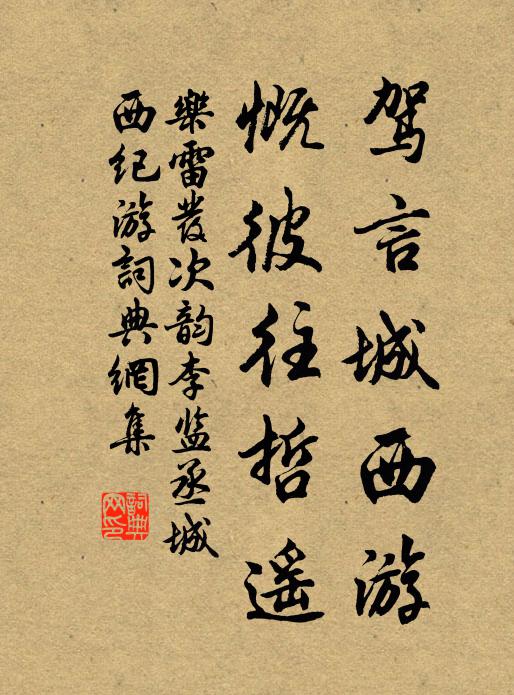 驾言城西游
慨彼往哲遥
樂雷發次韵李监丞城
西纪游詞典網集
詞典網印